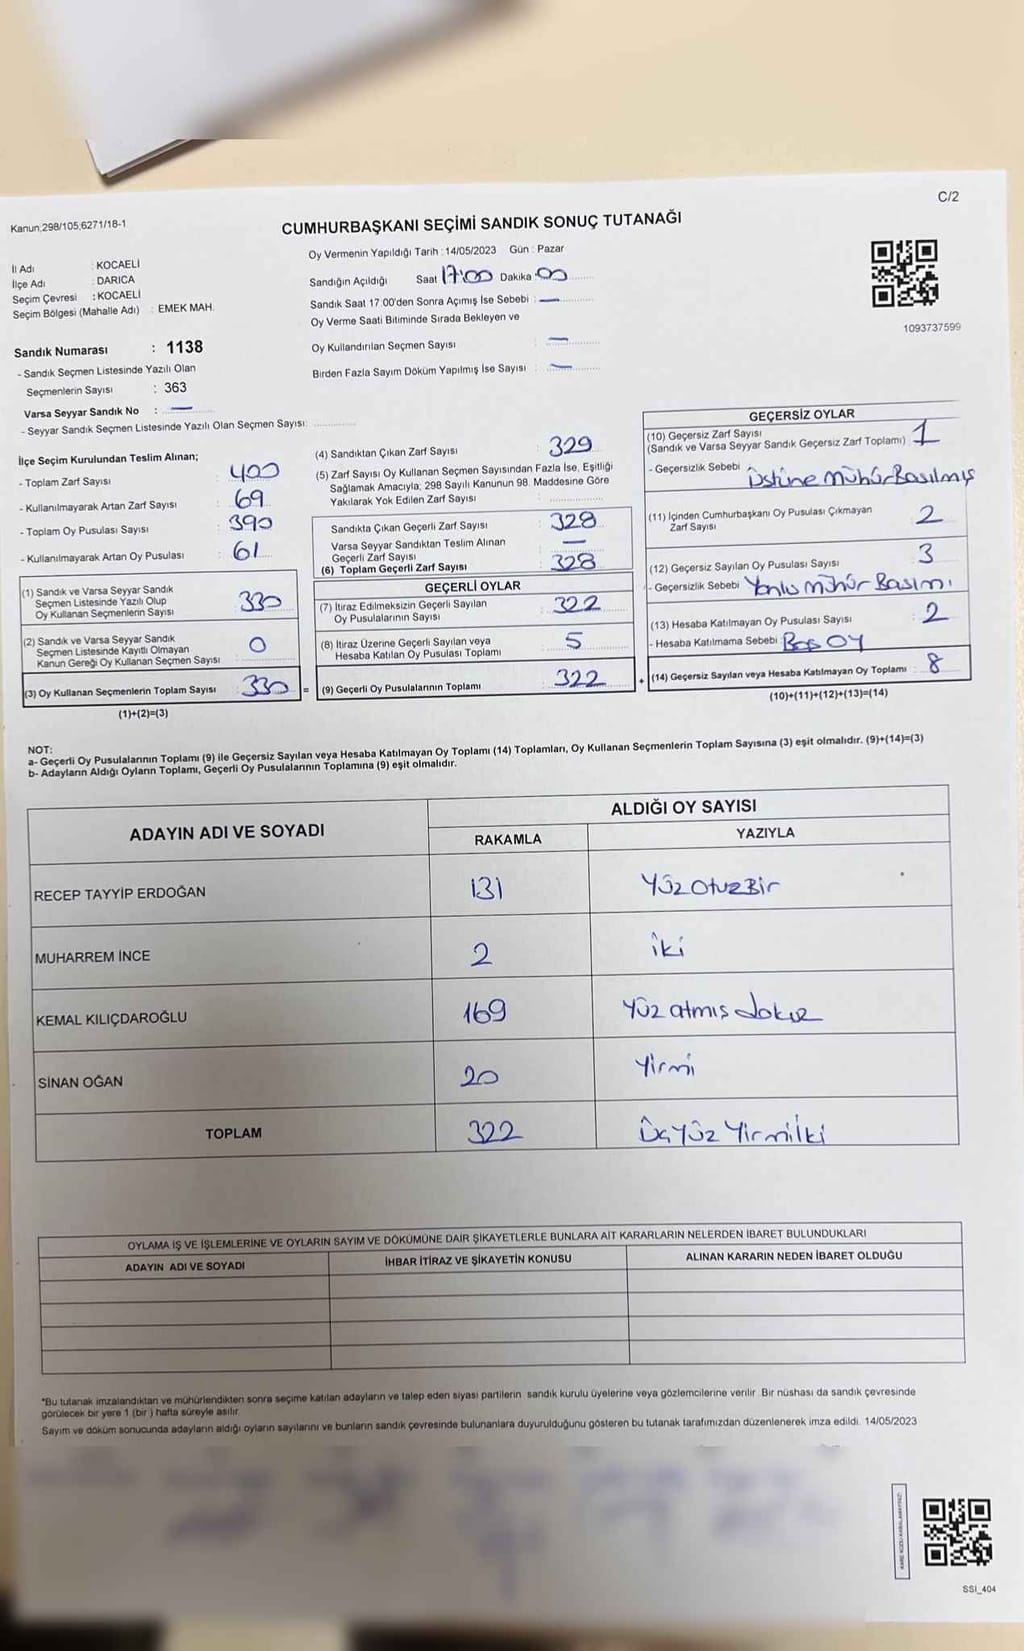 C/2
Kanun;298/105,6271/18-1
CUMHURBAŞKANI SEÇİMİ SANDIK SONUÇ TUTANAĞI
İl Adı : KOCAELİ
İlçe Adı : DARICA
Seçim Çevresi : KOCAELİ
Seçim Bölgesi (Mahalle Adı) : EMEK MAH.
Sandık Numarası : 1138
- Sandık Seçmen Listesinde Yazılı Olan
Seçmenlerin Sayısı : 363
Varsa Seyyar Sandık No : —
- Seyyar Sandık Seçmen Listesinde Yazılı Olan Seçmen Sayısı:
Oy Vermenin Yapıldığı Tarih : 14/05/2023 Gün : Pazar
Sandığın Açıldığı Saat 17:00 Dakika 00
Sandık Saat 17:00'den Sonra Açımış İse Sebebi : —
Oy Verme Saati Bitiminde Sırada Bekleyen ve
Oy Kullandırılan Seçmen Sayısı : —
Birden Fazla Sayım Döküm Yapılmış İse Sayısı : —
1093737599
İlçe Seçim Kurulundan Teslim Alınan;
- Toplam Zarf Sayısı : 400
- Kullanılmayarak Artan Zarf Sayısı : 69
- Toplam Oy Pusulası Sayısı : 390
- Kullanılmayarak Artan Oy Pusulası : 61
(1) Sandık ve Varsa Seyyar Sandık
Seçmen Listesinde Yazılı Olup
Oy Kullanan Seçmenlerin Sayısı : 330
(2) Sandık ve Varsa Seyyar Sandık
Seçmen Listesinde Kayıtlı Olmayan
Kanun Gereği Oy Kullanan Seçmen Sayısı : 0
(3) Oy Kullanan Seçmenlerin Toplam Sayısı : 330 =
(1)+(2)=(3)
(4) Sandıktan Çıkan Zarf Sayısı : 329
(5) Zarf Sayısı Oy Kullanan Seçmen Sayısından Fazla İse, Eşitliği
Sağlamak Amacıyla; 298 Sayılı Kanunun 98. Maddesine Göre
Yakılarak Yok Edilen Zarf Sayısı :
Sandıkta Çıkan Geçerli Zarf Sayısı : 328
Varsa Seyyar Sandıktan Teslim Alınan
Geçerli Zarf Sayısı : —
(6) Toplam Geçerli Zarf Sayısı : 328
GEÇERLİ OYLAR
(7) İtiraz Edilmeksizin Geçerli Sayılan
Oy Pusulalarının Sayısı : 322
(8) İtiraz Üzerine Geçerli Sayılan veya
Hesaba Katılan Oy Pusulası Toplamı : 5
(9) Geçerli Oy Pusulalarının Toplamı : 322 +
GEÇERSİZ OYLAR
(10) Geçersiz Zarf Sayısı
(Sandık ve Varsa Seyyar Sandık Geçersiz Zarf Toplamı) : 1
- Geçersizlik Sebebi : Üstüne Mühür Basılmış
(11) İçinden Cumhurbaşkanı Oy Pusulası Çıkmayan
Zarf Sayısı : 2
(12) Geçersiz Sayılan Oy Pusulası Sayısı : 3
- Geçersizlik Sebebi : Yanlış Mühür Basımı
(13) Hesaba Katılmayan Oy Pusulası Sayısı : 2
- Hesaba Katılmama Sebebi : Boş Oy
(14) Geçersiz Sayılan veya Hesaba Katılmayan Oy Toplamı : 8
(10)+(11)+(12)+(13)=(14)
NOT:
a- Geçerli Oy Pusulalarının Toplamı (9) ile Geçersiz Sayılan veya Hesaba Katılmayan Oy Toplamı (14) Toplamları, Oy Kullanan Seçmenlerin Toplam Sayısına (3) eşit olmalıdır. (9)+(14)=(3)
b- Adayların Aldığı Oyların Toplamı, Geçerli Oy Pusulalarının Toplamına (9) eşit olmalıdır.
ALDIĞI OY SAYISI
ADAYIN ADI VE SOYADI RAKAMLA YAZIYLA
RECEP TAYYİP ERDOĞAN 131 Yüz Otuz Bir
MUHARREM İNCE 2 iki
KEMAL KILIÇDAROĞLU 169 Yüz atmış dokuz
SİNAN OĞAN 20 Yirmi
TOPLAM 322 Üç Yüz Yirmi İki
OYLAMA İŞ VE İŞLEMLERİNE VE OYLARIN SAYIM VE DÖKÜMÜNE DAİR ŞİKAYETLERLE BUNLARA AİT KARARLARIN NELERDEN İBARET BULUNDUKLARI
ADAYIN ADI VE SOYADI İHBAR İTİRAZ VE ŞİKAYETİN KONUSU ALINAN KARARIN NEDEN İBARET OLDUĞU
*Bu tutanak imzalandıktan ve mühürlendikten sonra seçime katılan adayların ve talep eden siyasi partilerin sandık kurulu üyelerine veya gözlemcilerine verilir. Bir nüshası da sandık çevresinde
görülecek bir yere 1 (bir ) hafta süreyle asılır.
Sayım ve döküm sonucunda adayların aldığı oyların sayılarını ve bunların sandık çevresinde bulunanlara duyurulduğunu gösteren bu tutanak tarafımızdan düzenlenerek imza edildi. 14/05/2023
SSI_404